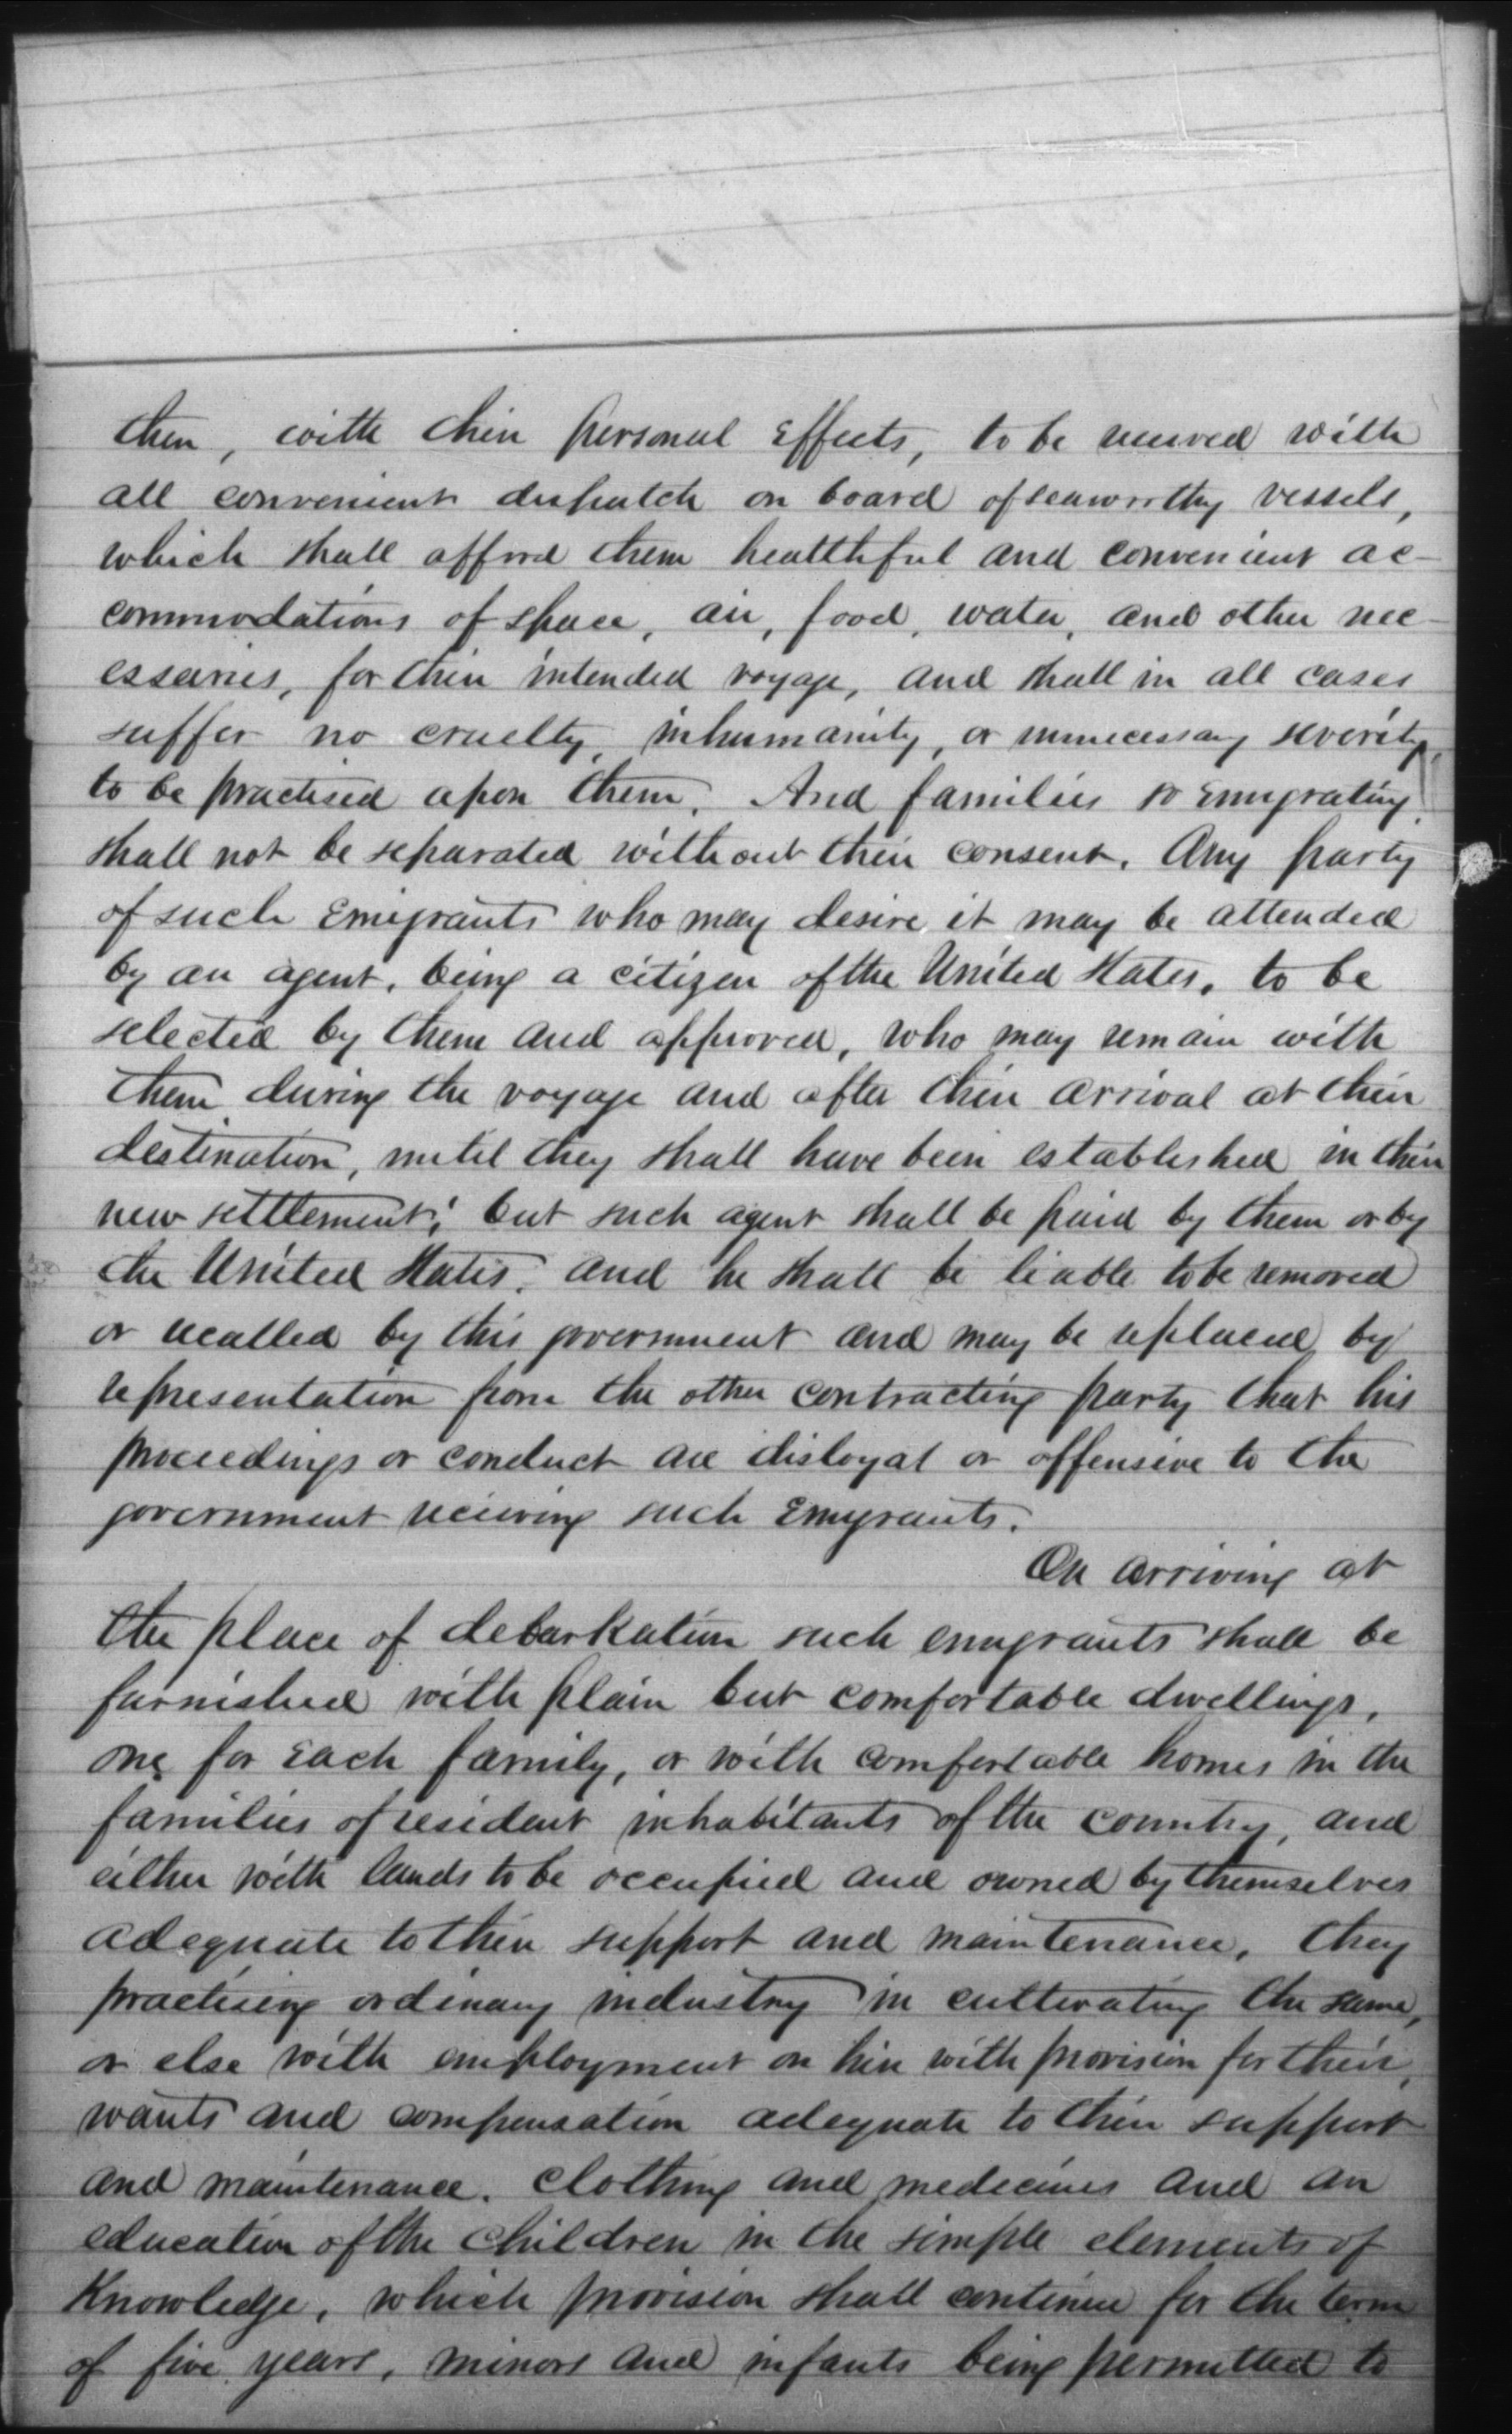 them, with their personal effects, to be received with
all convenient dispatch on board of seaworthy vessels,
which shall afford them healthful and convenient ac-
commodations of space, air, food, water, and other nec-
essaries, for their intended voyage, and shall in all cases
suffer no cruelty, inhumanity, or unnecessary severity,
to be practised upon them. And families so emigrating
shall not be separated without their consent. Any party
of such Emigrants who may desire it may be attended
by an agent, being a citizen of the United States, to be
selected by them and approved, who may remain with
them during the voyage and after their arrival at their
destination, until they shall have been established in their
new settlement; but such agent shall be paid by them or by
the United States, and he shall be liable to be removed
or recalled by this government and may be replaced by
representation from the other contracting party that his
proceedings or conduct are disloyal or offensive to the
government receiving such Emigrants.
On arriving at
the place of debarkation such emigrants shall be
furnished with plain but comfortable dwellings,
one for each family, or with comfortable homes in the
families of resident inhabitants of the country, and
either with lands to be occupied and owned by themselves
adequate to their support and maintenance, they
practising ordinary industry in cultivating the same,
or else with employment on hire with provision for their
wants and compensation adequate to their support
and maintenance. Clothing and medicines and an
education of the children in the simple elements of
Knowledge, which provision shall continue for the term
of five years, minors and infants being permitted to